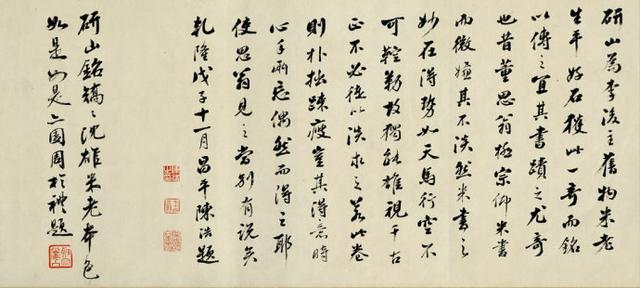 研山為李後主舊物米老
生平好石獲此一奇而銘
以傳之宜其書蹟之尤奇
也昔董思翁極宗仰米書
而微嫌其不淡然米書之
妙在得勢如天馬行空不
可鞚勒故獨能雄視千古
正不必徒以淡求之若此卷
則朴拙疎瘦豈其得意時
心手兩忘偶然而得之耶
使思翁見之當別有說矣
乾隆戊子十一月昌平陳浩題
研山銘鏑鏑沈雄米老本色
如是如是亡國周於禮題